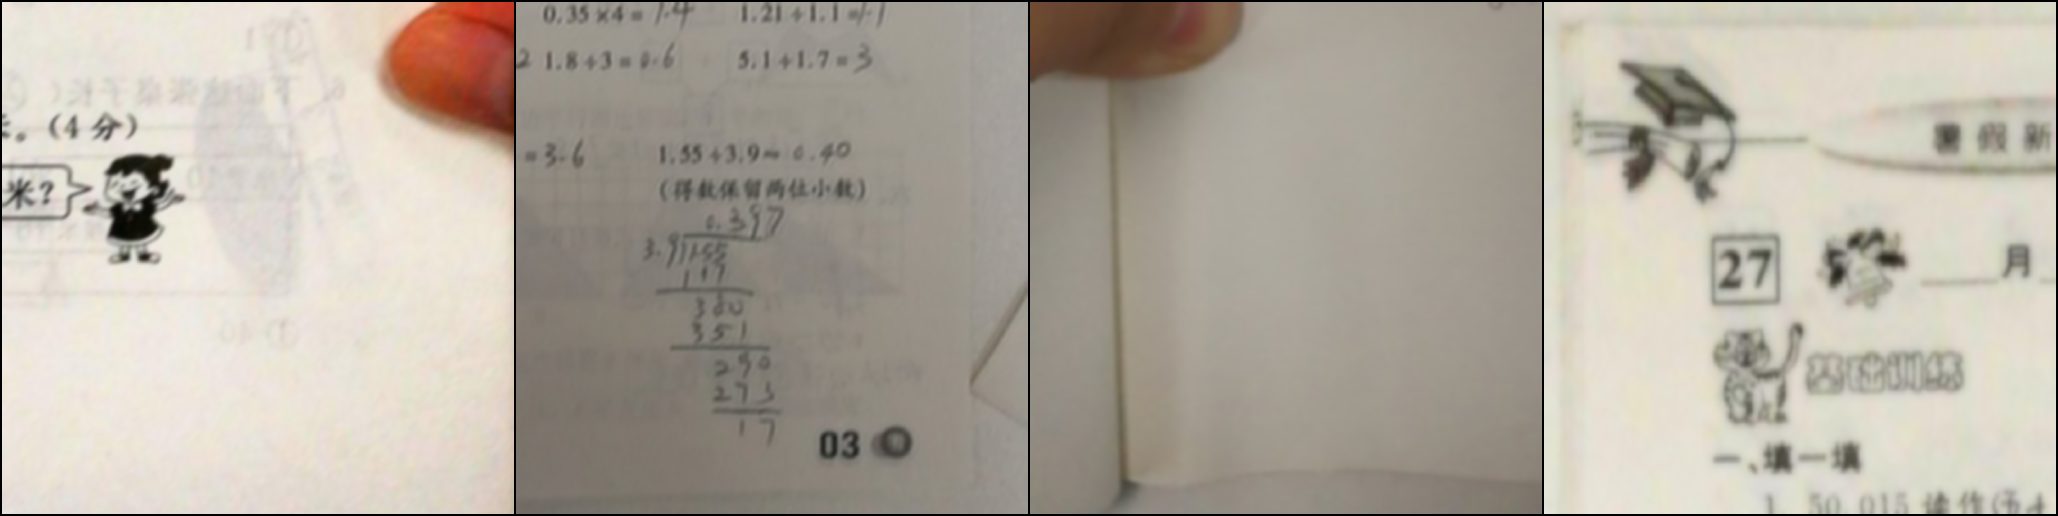 。(4分)
米?
0.35×4=1.4 1.21÷1.1=1.1
2 1.8÷3=0.6 5.1÷1.7=3
=3.6 1.55÷3.9≈0.40
(得数保留两位小数)
0.397
3.9 155
117
380
351
290
273
17
03
暑假新
27 月
基础训练
一、填一填
1. 50.015读作(五十